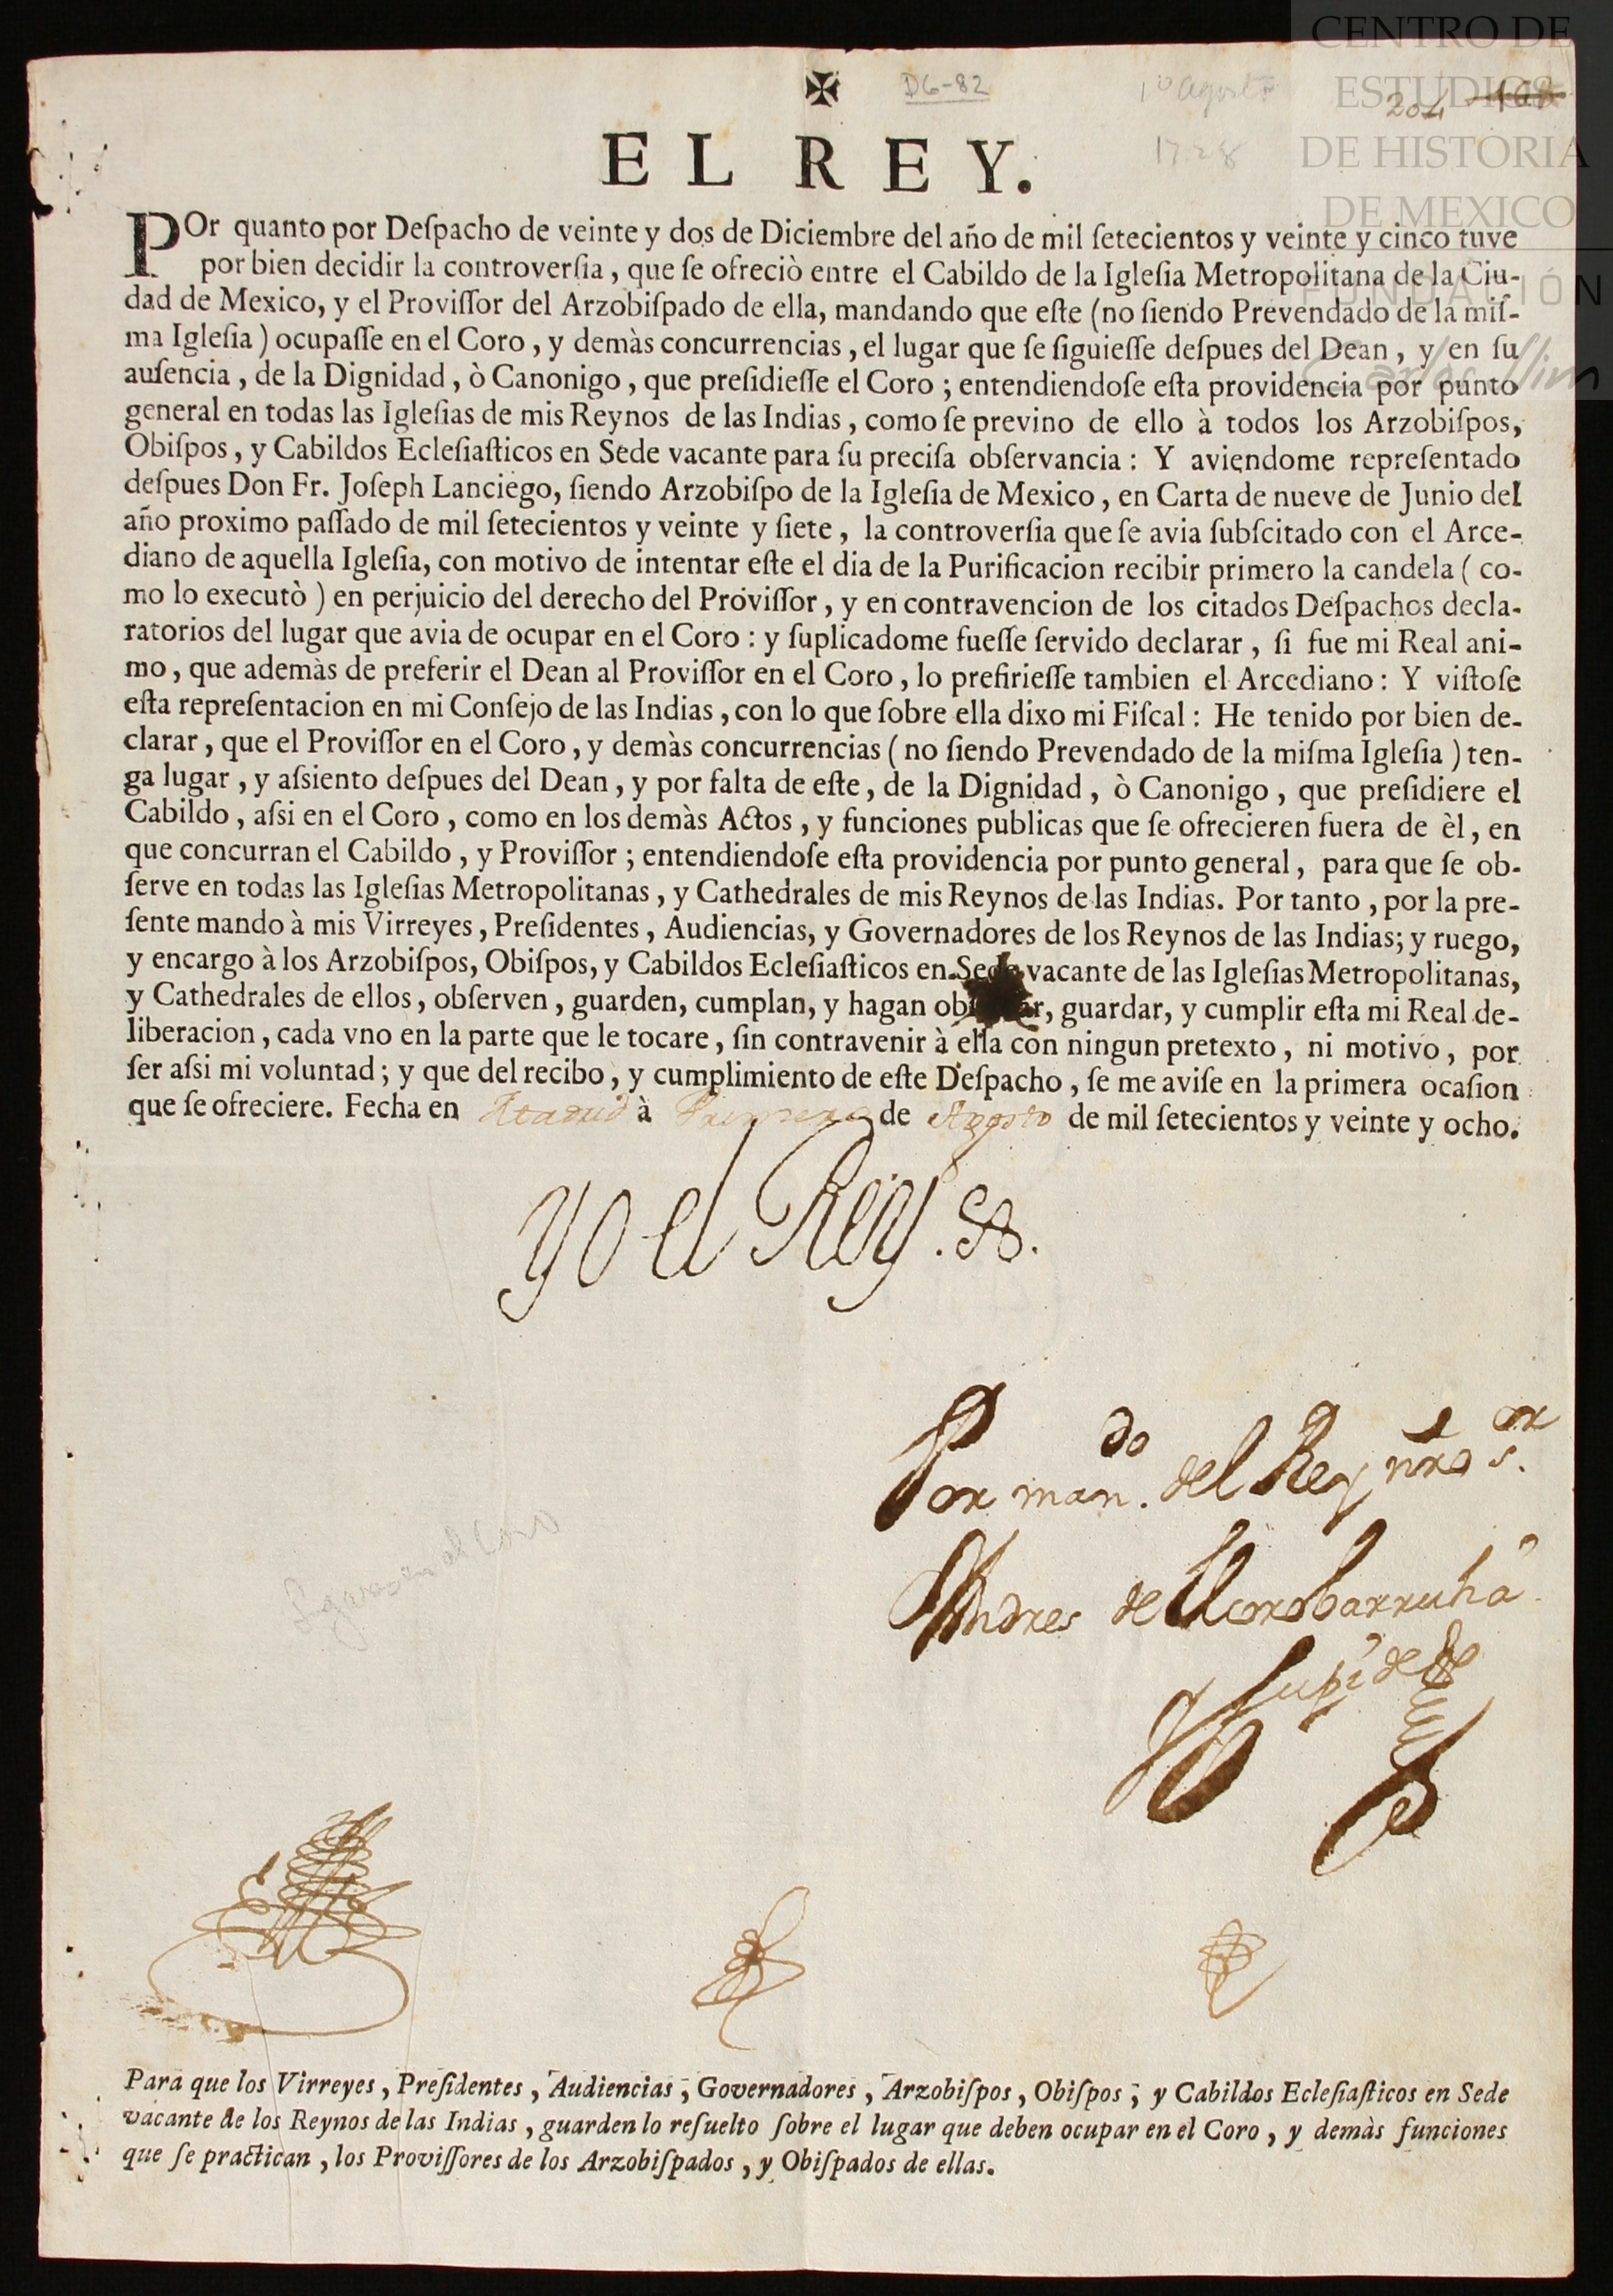 CENTRO DE
ESTUDIOS
DE HISTORIA
DE MEXICO
FUNDACIÓN
Carlos Slim
D6-82
1º agosto
1728
204
EL REY.
POr quanto por Deſpacho de veinte y dos de Diciembre del año de mil ſetecientos y veinte y cinco tuve
por bien decidir la controverſia, que ſe ofreciò entre el Cabildo de la Igleſia Metropolitana de la Ciu-
dad de Mexico, y el Proviſſor del Arzobiſpado de ella, mandando que eſte (no ſiendo Prevendado de la miſ-
ma Igleſia) ocupaſſe en el Coro, y demàs concurrencias, el lugar que ſe ſiguieſſe deſpues del Dean, y en ſu
auſencia, de la Dignidad, ò Canonigo, que preſidieſſe el Coro; entendiendoſe eſta providencia por punto
general en todas las Igleſias de mis Reynos de las Indias, como ſe previno de ello à todos los Arzobiſpos,
Obiſpos, y Cabildos Ecleſiaſticos en Sede vacante para ſu preciſa obſervancia: Y aviendome repreſentado
deſpues Don Fr. Joſeph Lanciego, ſiendo Arzobiſpo de la Igleſia de Mexico, en Carta de nueve de Junio del
año proximo paſſado de mil ſetecientos y veinte y ſiete, la controverſia que ſe avia ſubſcitado con el Arce-
diano de aquella Igleſia, con motivo de intentar eſte el dia de la Purificacion recibir primero la candela (co-
mo lo executò) en perjuicio del derecho del Proviſſor, y en contravencion de los citados Deſpachos decla-
ratorios del lugar que avia de ocupar en el Coro: y ſuplicadome fueſſe ſervido declarar, ſi fue mi Real ani-
mo, que ademàs de preferir el Dean al Proviſſor en el Coro, lo prefirieſſe tambien el Arcediano: Y viſtoſe
eſta repreſentacion en mi Conſejo de las Indias, con lo que ſobre ella dixo mi Fiſcal: He tenido por bien de-
clarar, que el Proviſſor en el Coro, y demàs concurrencias (no ſiendo Prevendado de la miſma Igleſia) ten-
ga lugar, y aſsiento deſpues del Dean, y por falta de eſte, de la Dignidad, ò Canonigo, que preſidiere el
Cabildo, aſsi en el Coro, como en los demàs Actos, y funciones publicas que ſe ofrecieren fuera de èl, en
que concurran el Cabildo, y Proviſſor; entendiendoſe eſta providencia por punto general, para que ſe ob-
ſerve en todas las Igleſias Metropolitanas, y Cathedrales de mis Reynos de las Indias. Por tanto, por la pre-
ſente mando à mis Virreyes, Preſidentes, Audiencias, y Governadores de los Reynos de las Indias; y ruego,
y encargo à los Arzobiſpos, Obiſpos, y Cabildos Ecleſiaſticos en Sede vacante de las Igleſias Metropolitanas,
y Cathedrales de ellos, obſerven, guarden, cumplan, y hagan guardar, y cumplir eſta mi Real de-
liberacion, cada vno en la parte que le tocare, ſin contravenir à ella con ningun pretexto, ni motivo, por
ſer aſsi mi voluntad; y que del recibo, y cumplimiento de eſte Deſpacho, ſe me aviſe en la primera ocaſion
que ſe ofreciere. Fecha en Madrid à Primero de Agosto de mil ſetecientos y veinte y ocho.
Yo el Rey.
Por man.do del Rey nro s.or
Andres de
Para que los Virreyes, Preſidentes, Audiencias, Governadores, Arzobiſpos, Obiſpos, y Cabildos Ecleſiaſticos en Sede
vacante de los Reynos de las Indias, guarden lo reſuelto ſobre el lugar que deben ocupar en el Coro, y demàs funciones
que ſe practican, los Proviſſores de los Arzobiſpados, y Obiſpados de ellas.